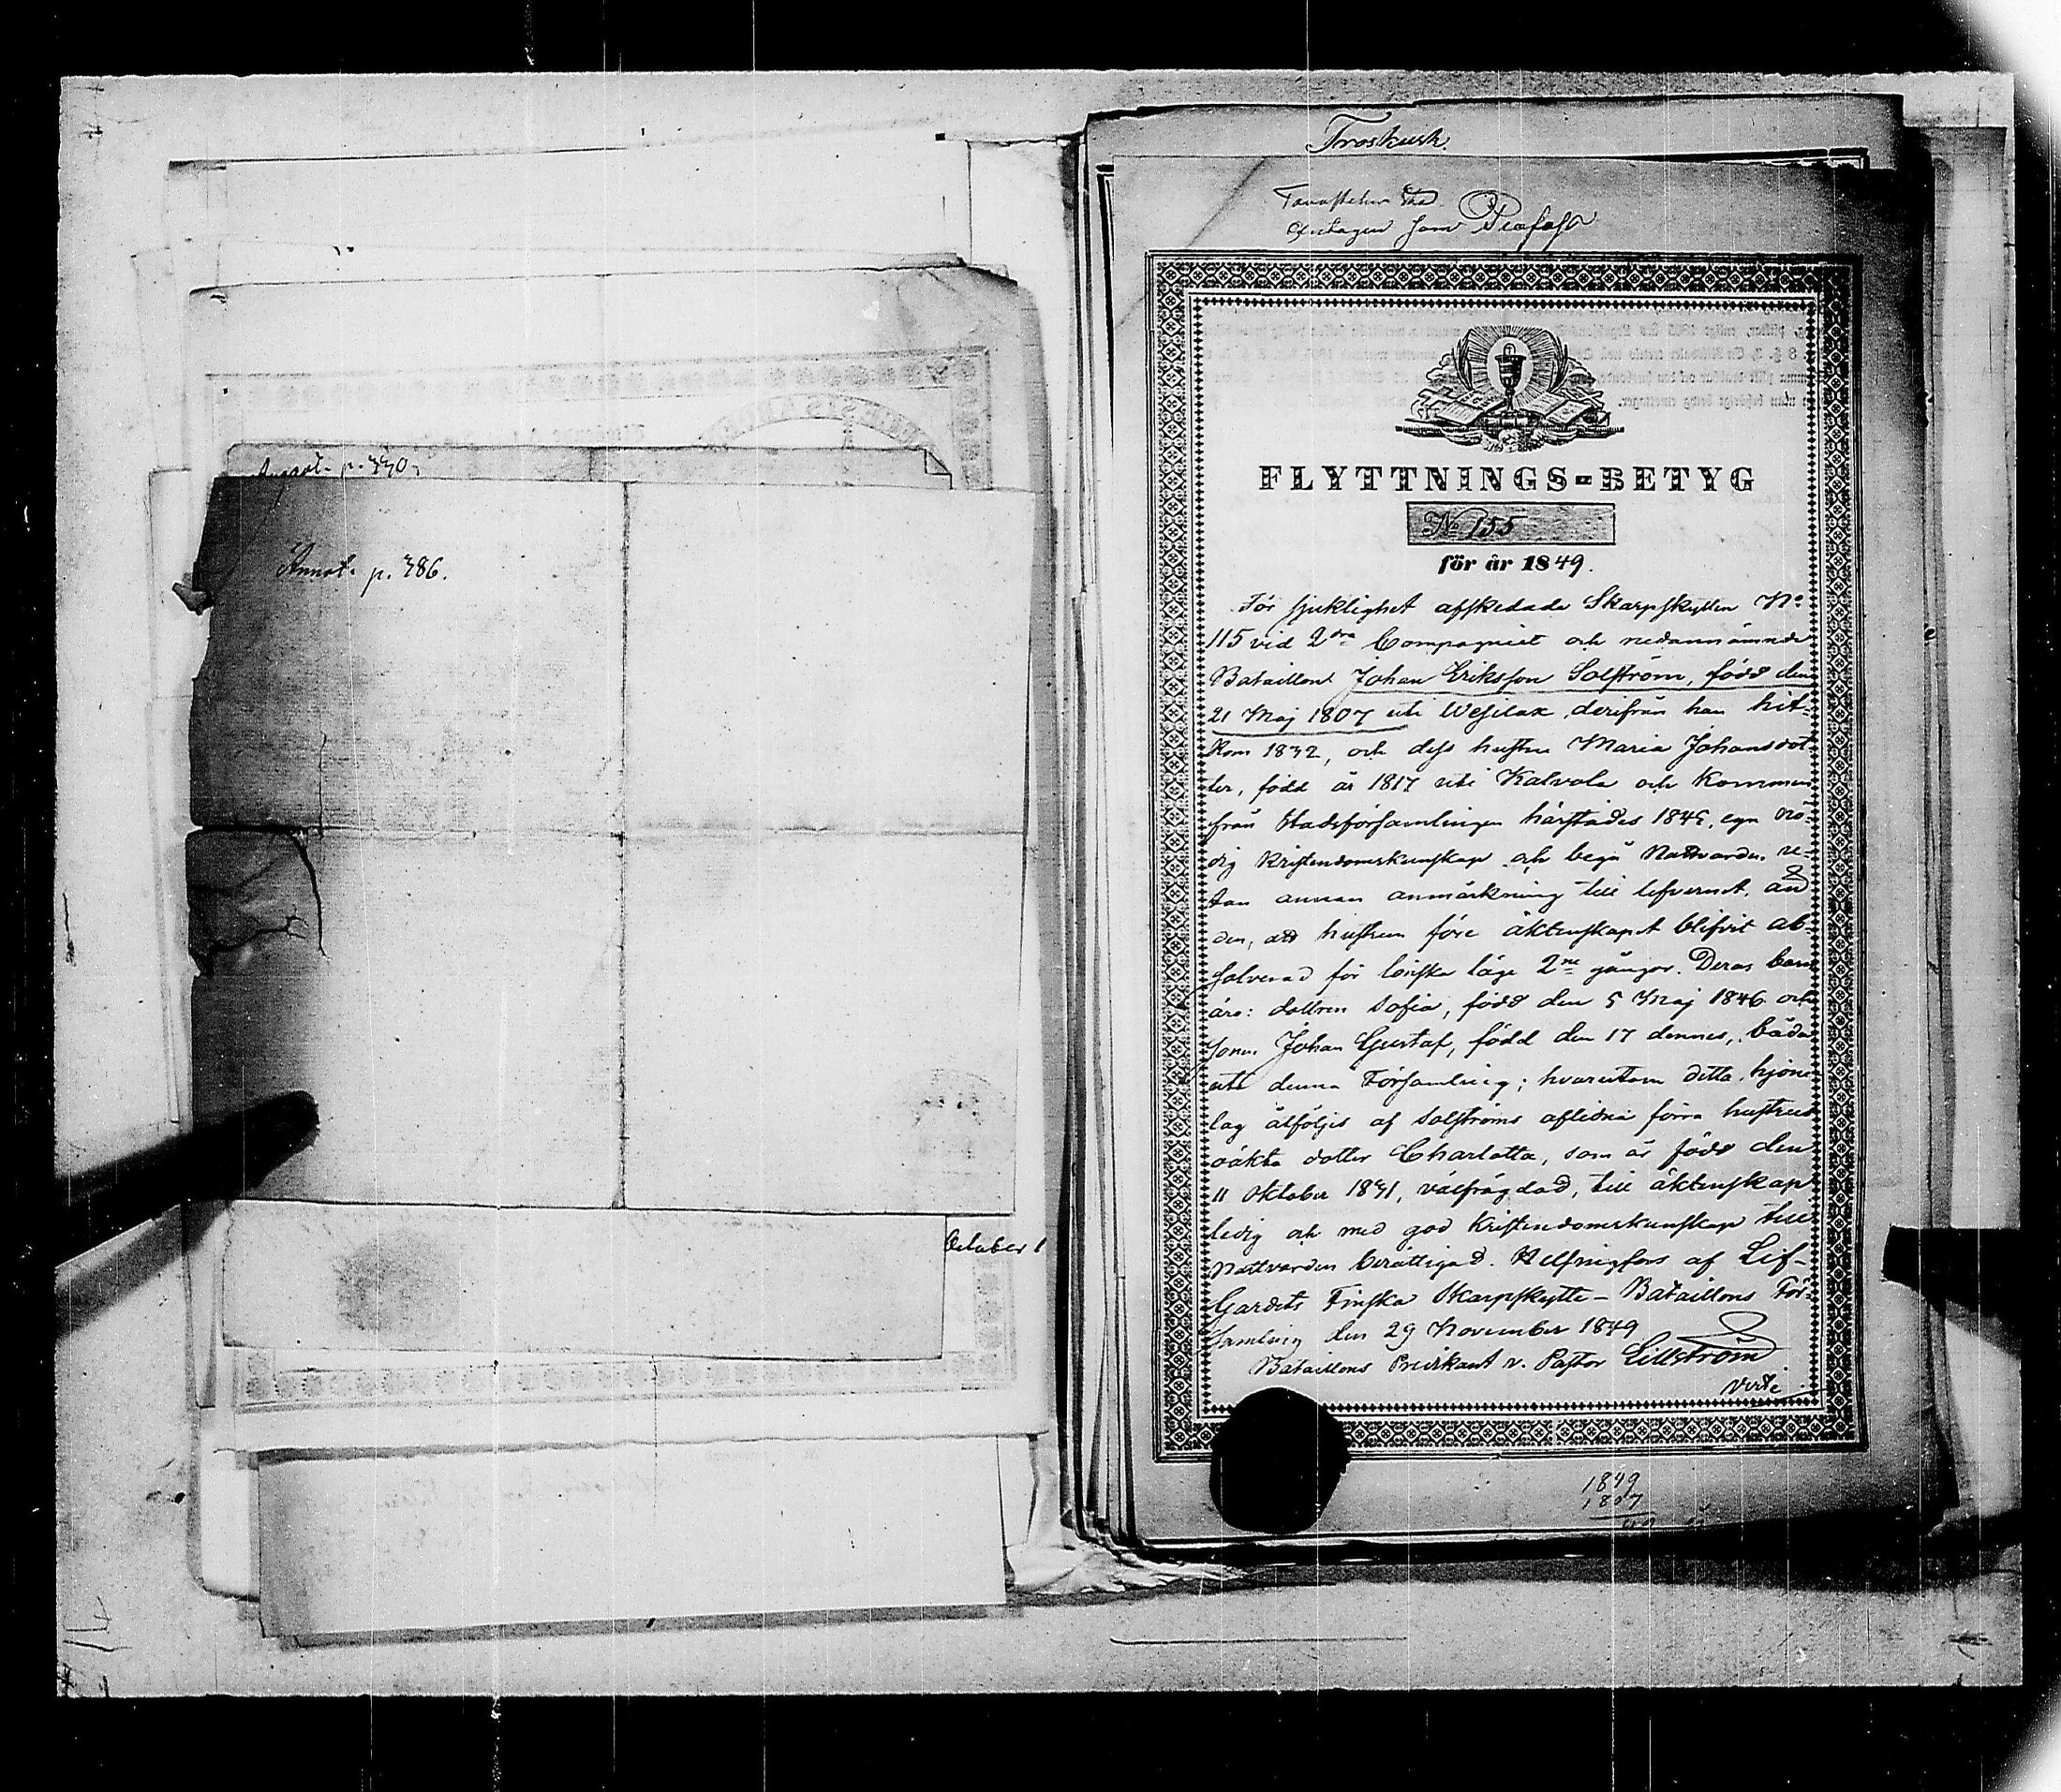 Annot. p. 330.
Annot. p. 386.
October 1
Troskusk.
Tavastehus
antagen som
FLYTTNINGS-BETYG
No 155
för år 1849.
För sjuklighet afskedade Skarpskytten No
115 vid 2dra Compagniet och nedannämnde
Bataillon Johan Eriksson Solström, född den
21 Maj 1807 uti Wesilax, derifrån han hit-
kom 1832, och dess hustru Maria Johansdot
ter, född år 1817 uti Kalvola och kommen
från Stadsförsamlingen härstädes 1845, ega nö-
dig kristendomskunskap och begå Nattvarden u-
tan annan anmärkning till lefvernet, än
den, att hustrun före äktenskapet blifvit ab-
solverad för lönska läge 2ne gångor. Deras barn
äro: dottren Sofia, född den 5 Maj 1846 och
sonen Johan Gustaf, född den 17 dennes, båda
uti denna Församling; hvarutom detta hjone
lag åtföljes af Solströms aflidna förra hustrus
oäkta dotter Charlotta, som är född den
11 Oktober 1831, välfrägdad, till äktenskap
ledig och med god Kristendomskunskap till
Nattvarden berättigad. Helsingfors af Lif-
Gardets Finska Skarpskytte-Bataillons För-
samling den 29 November 1849
Bataillons Predikant v. Pastor Lillström
1849
1807
42